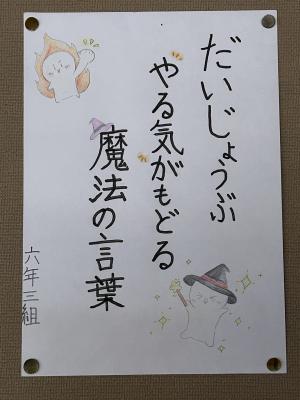 だいじょうぶ
やる気がもどる
魔法の言葉
六年三組